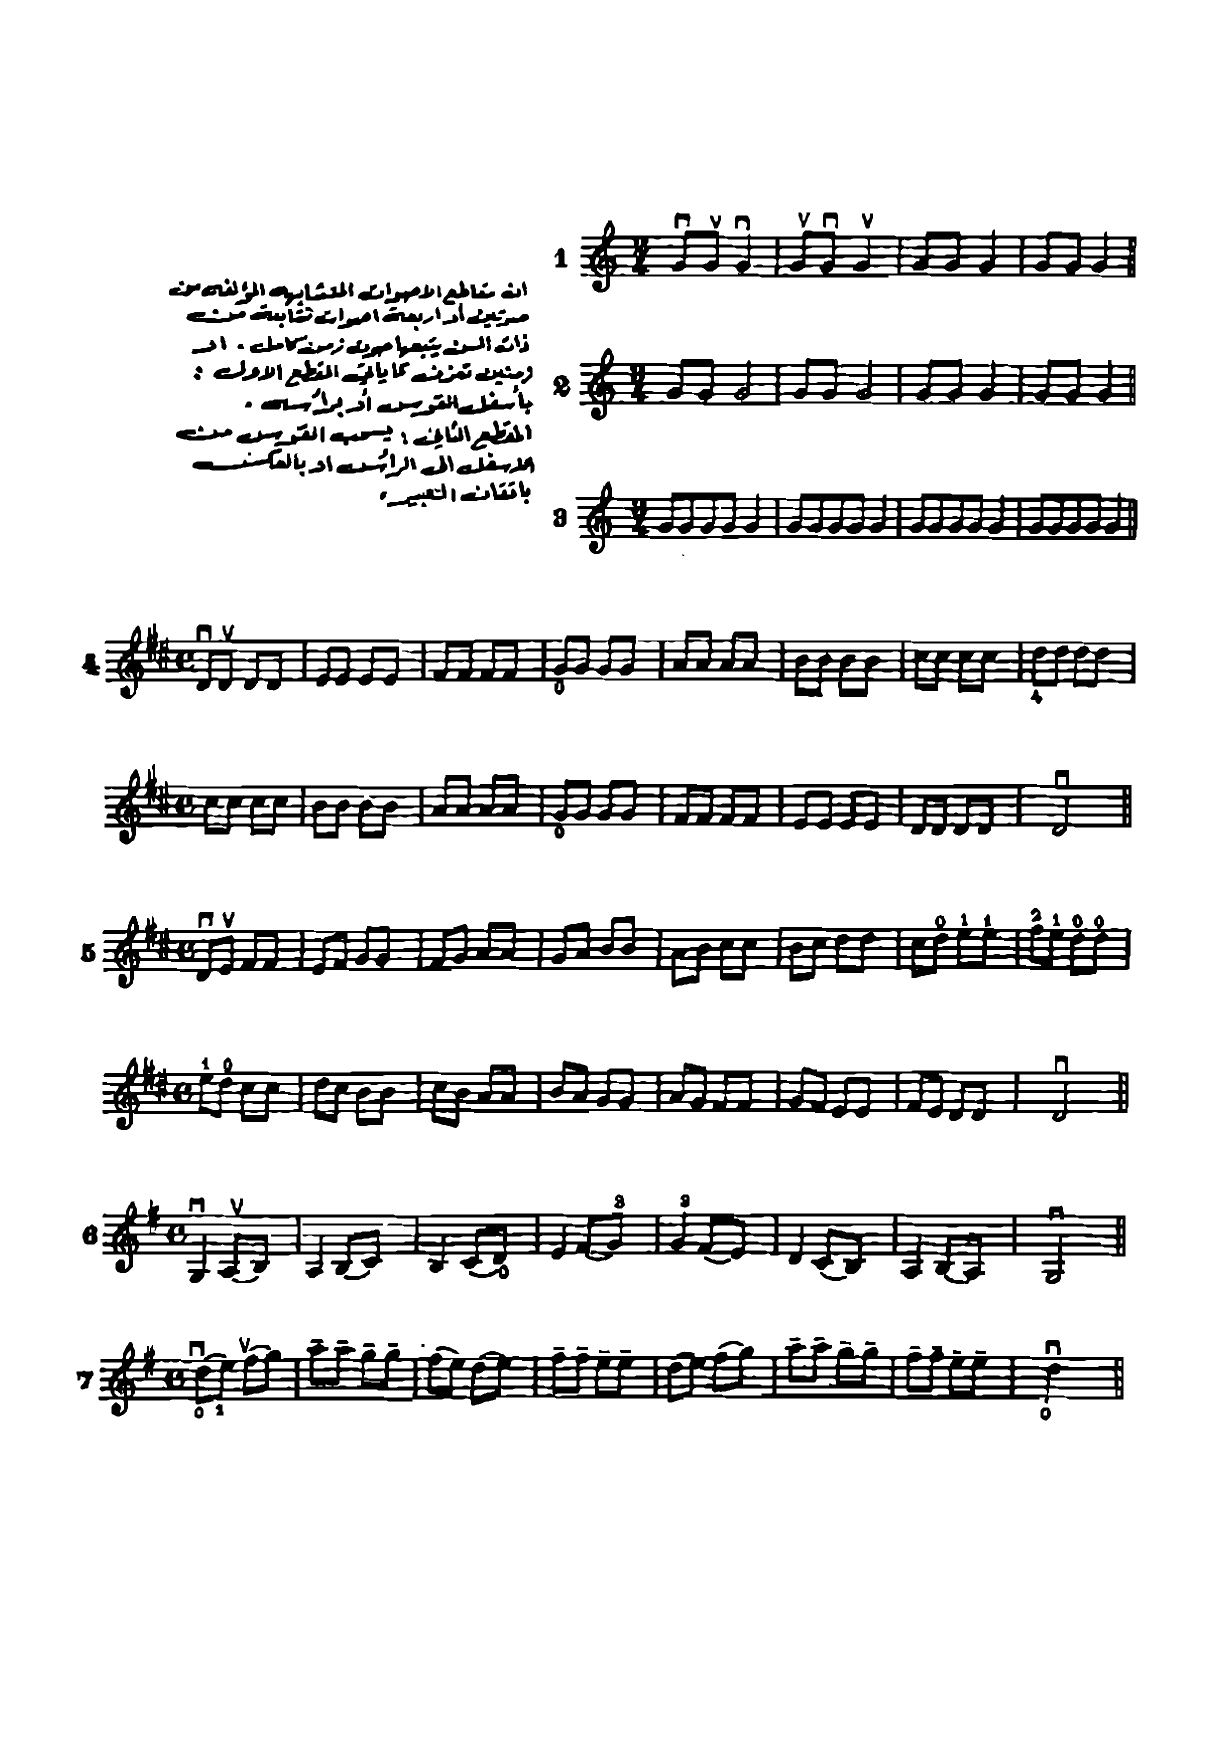 ان مقاطع الاصوات المتشابهه المؤلفه من
صوتين أو اربعة اصوات متشابهة من
ذات السن يتبعها صوت زمن كامل . او
زمنين تعزف كما يأتي المقطع الاول :
بأسفل القوس أو برأسه .
المقطع الثاني : يسحب القوس من
الاسفل الى الرأس او بالعكس
باتقان التعبير .
1
2
3
4
0
4
0
5
0 1 1 2 1 0 0
1 0
6
3 3
0
7
0 1 0